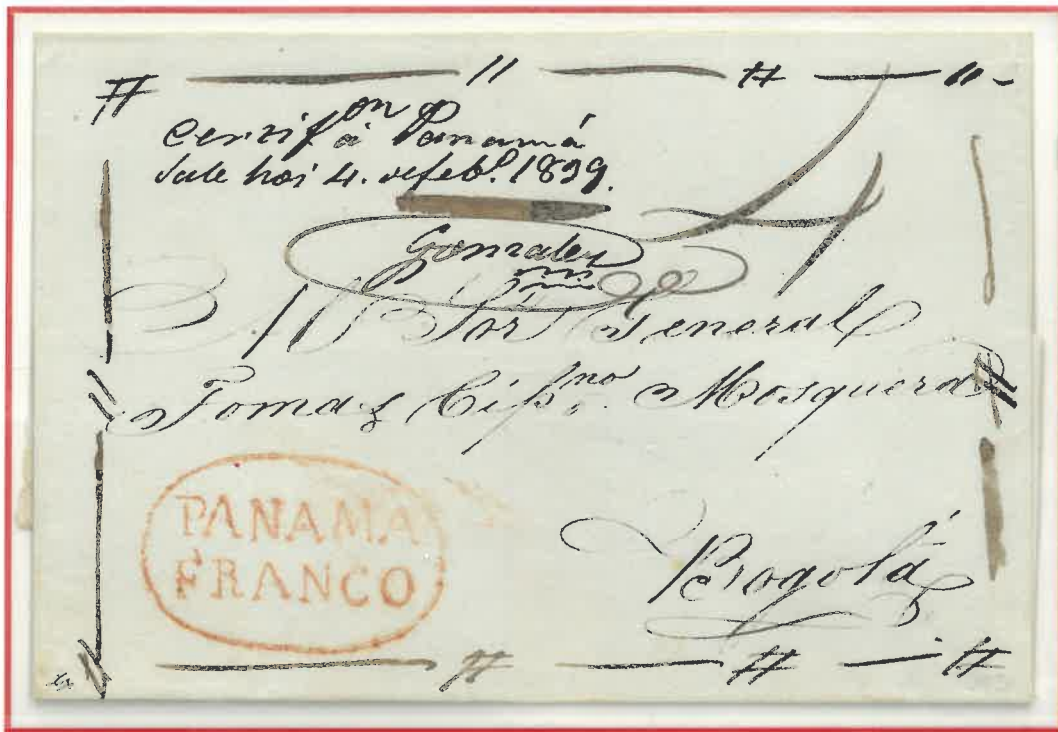 Certif.on
à Panamá
Sale hoi 4. de feb.o 1839.
Gonzalez
Sor General
Tomaz Cip.no Mosquera
PANAMA
FRANCO
Bogotá